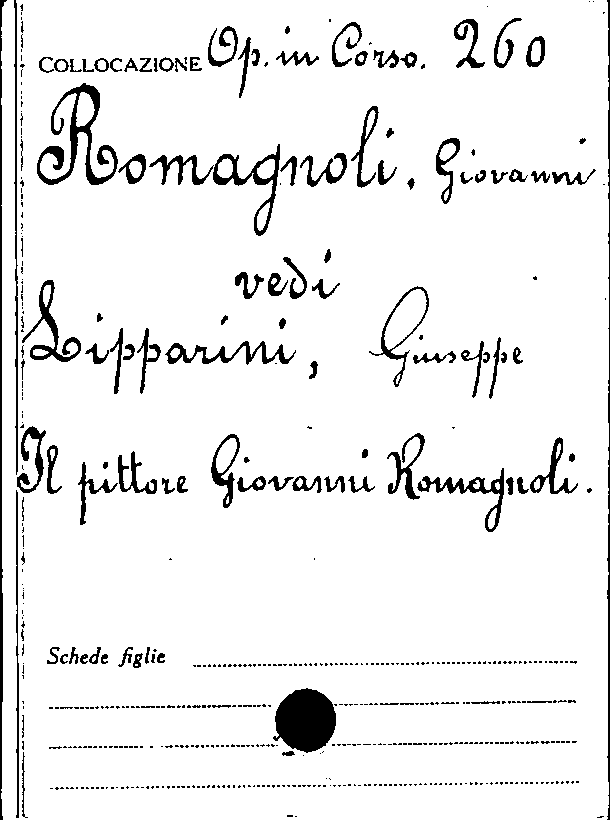 COLLOCAZIONE Op. in Corso. 260
Romagnoli, Giovanni
vedi
Lipparini, Giuseppe
Il pittore Giovanni Romagnoli.
Schede figlie